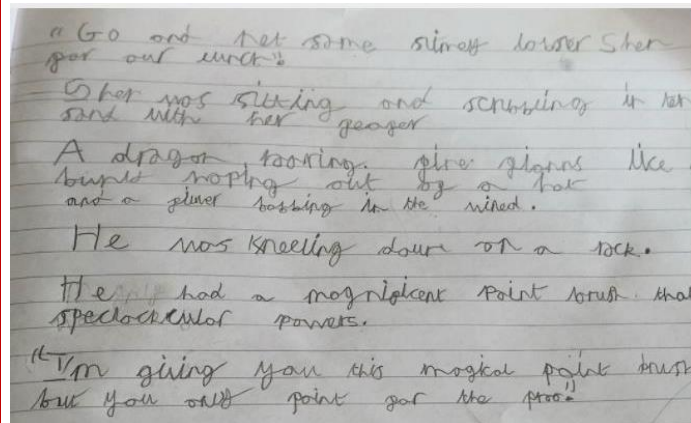 "Go and net some slimey lobster Sher
for our lunch"
Sher was sitting and scrubbing in her
sand with her
A dragon roaring. fire like
out of a hat
and a in the wined.
He was kneeling down on a rock.
He had a magnificent paint brush that
spectockculor powers.
"I'm giving you this magical paint brush
but you only paint for the proo"